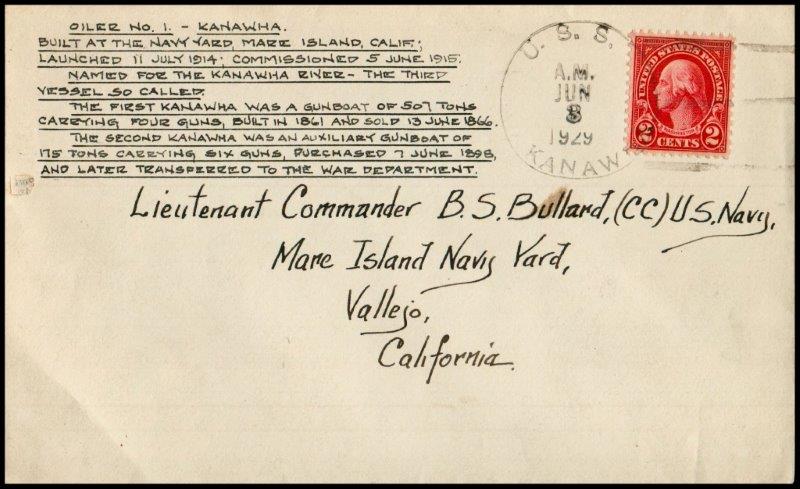 OILER NO. 1. - KANAWHA.
BUILT AT THE NAVY YARD, MARE ISLAND, CALIF;
LAUNCHED 11 JULY 1914; COMMISSIONED 5 JUNE 1915.
NAMED FOR THE KANAWHA RIVER - THE THIRD
VESSEL SO CALLED.
THE FIRST KANAWHA WAS A GUNBOAT OF 507 TONS
CARRYING FOUR GUNS, BUILT IN 1861 AND SOLD 13 JUNE 1866.
THE SECOND KANAWHA WAS AN AUXILIARY GUNBOAT OF
175 TONS CARRYING SIX GUNS, PURCHASED 7 JUNE 1898,
AND LATER TRANSFERRED TO THE WAR DEPARTMENT.
U. S. S.
A.M.
JUN
8
1929
KANAW
UNITED STATES POSTAGE
2 2
CENTS
Lieutenant Commander B. S. Bullard, (CC) U.S. Navy,
Mare Island Navy Yard,
Vallejo,
California.